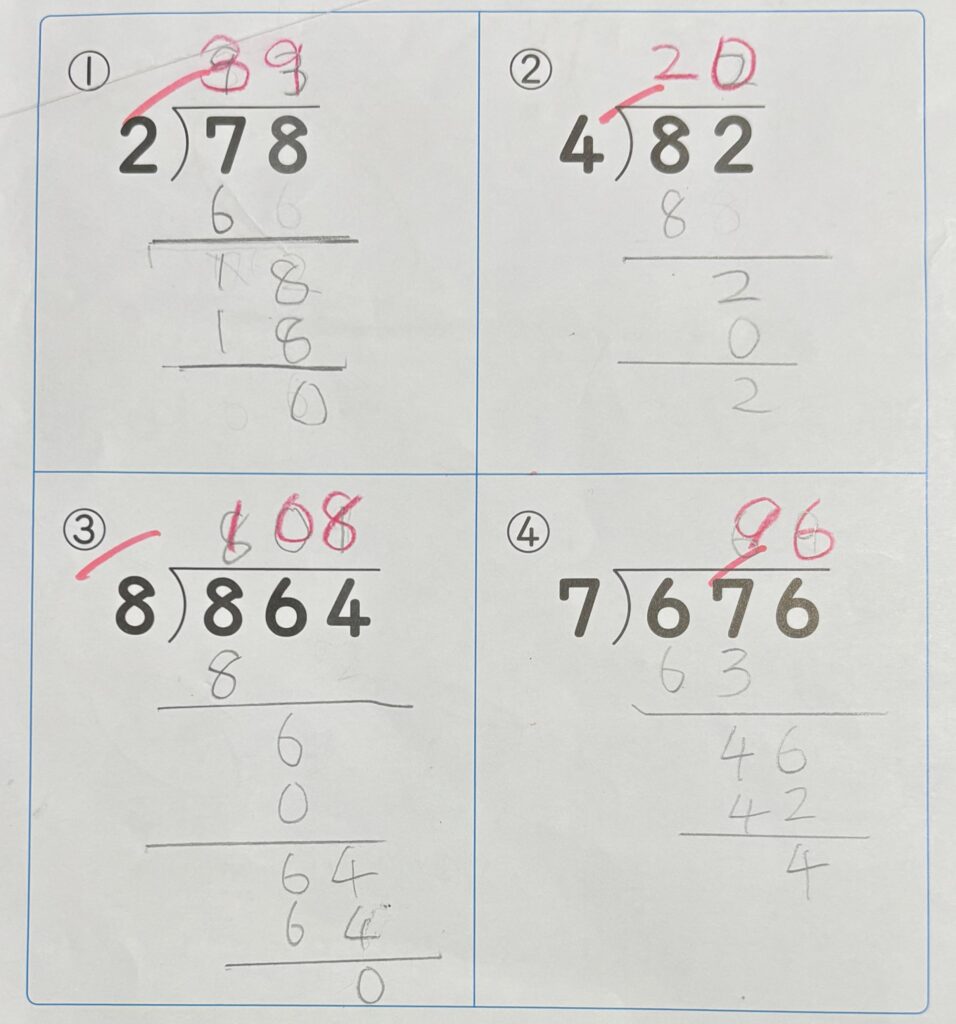 ①
39
2)78
6
18
18
0
②
20
4)82
8
2
0
2
③
108
8)864
8
6
0
64
64
0
④
96
7)676
63
46
42
4